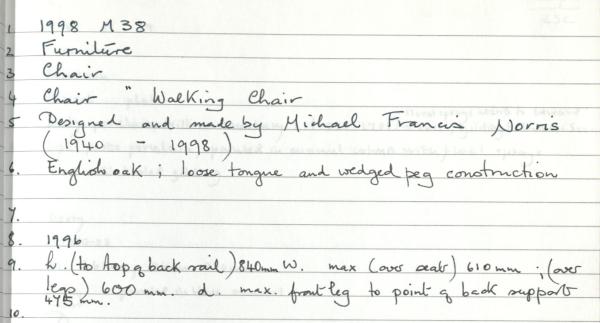 1 1998 M38
2 Furniture
3 Chair
4 Chair " Walking Chair
5 Designed and made by Michael Francis Norris
(1940 - 1998)
6. English oak ; loose tongue and wedged peg construction
7.
8. 1996
9. h. (to top of back rail) 840mm W. max (over seat) 610mm ; (over
legs) 600 mm. d. max. front leg to point of back support
475 mm.
10.